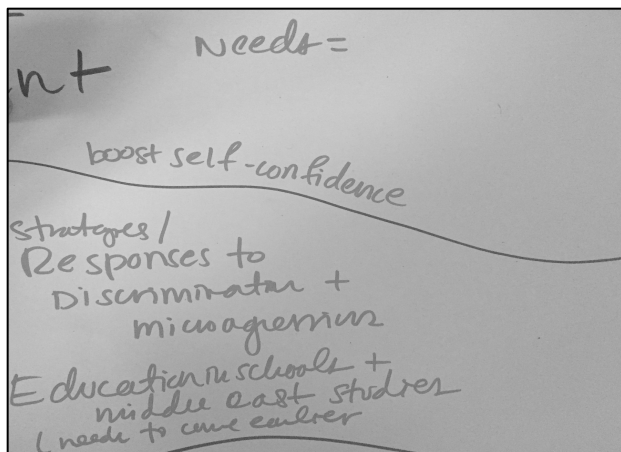 Needs =
nt
boost self-confidence
strategies/
Responses to
Discrimination +
microagressions
Education in schools +
middle east studies
(needs to come earlier